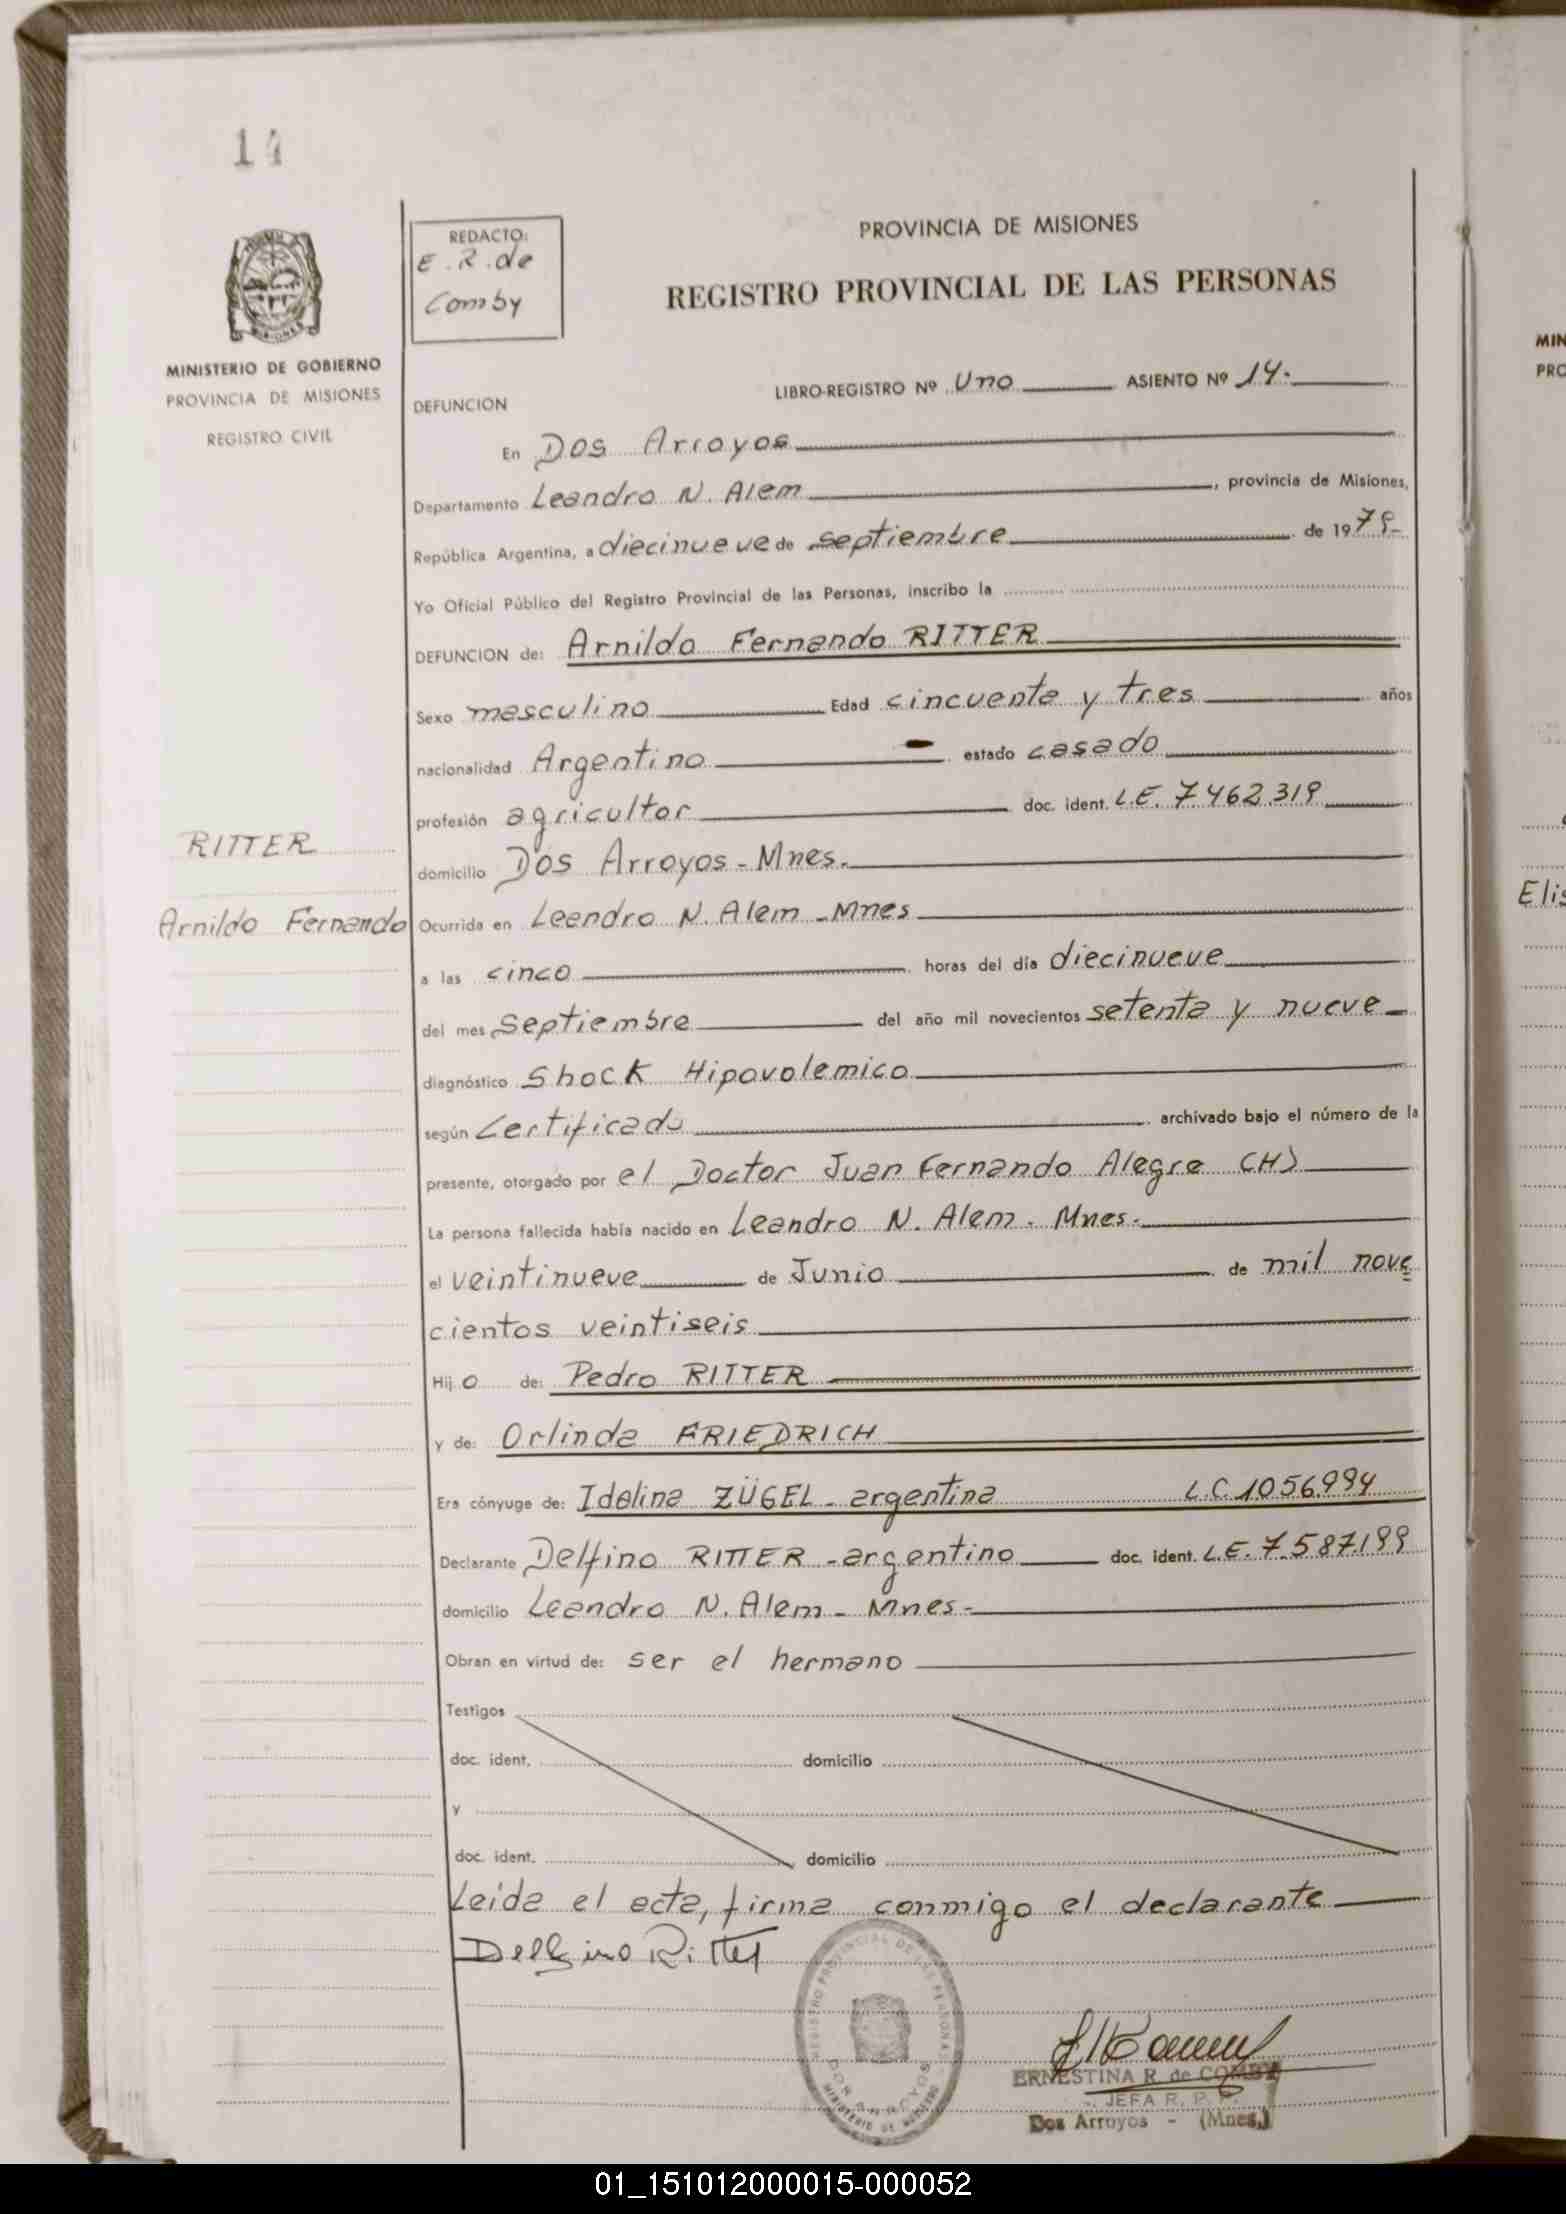 14
REDACTO:
E. R. de
Comby
PROVINCIA DE MISIONES
REGISTRO PROVINCIAL DE LAS PERSONAS
MINISTERIO DE GOBIERNO
PROVINCIA DE MISIONES
REGISTRO CIVIL
LIBRO-REGISTRO Nº Uno ASIENTO Nº 14.
DEFUNCION
En Dos Arroyos
Departamento Leandro N. Alem, provincia de Misiones,
República Argentina, a diecinueve de septiembre de 1979-
Yo Oficial Público del Registro Provincial de las Personas, inscribo la
DEFUNCION de: Arnildo Fernando RITTER
Sexo masculino Edad cincuenta y tres años
nacionalidad Argentino estado casado
profesión agricultor doc. ident. L.E. 7462.319
domicilio Dos Arroyos - Mnes.
RITTER
Arnildo Fernando
Ocurrida en Leandro N. Alem - Mnes
a las cinco horas del día diecinueve
del mes septiembre del año mil novecientos setenta y nueve
diagnóstico Shock Hipovolemico
según Certificado archivado bajo el número de la
presente, otorgado por el Doctor Juan Fernando Alegre (H)
La persona fallecida había nacido en Leandro N. Alem - Mnes.
el veintinueve de Junio de mil nove
cientos veintiseis
Hijo de: Pedro RITTER
y de: Orlinda FRIEDRICH
Era cónyuge de: Idalina ZÜGEL - argentina L.C. 1056.994
Declarante Delfino RITTER - argentino doc. ident. L.E. 7.587.199
domicilio Leandro N. Alem - Mnes -
Obran en virtud de: ser el hermano
Testigos
doc. ident. domicilio
y
doc. ident. domicilio
Leida el acta, firma conmigo el declarante
Delfino Ritter
REGISTRO PROVINCIAL DE LAS PERSONAS
DOS ARROYOS
MINISTERIO DE GOBIERNO
ERNESTINA R. de COMBY
JEFA R. P. P.
Dos Arroyos - (Mnes.)
MIN
PRO
Elis
01_151012000015-000052